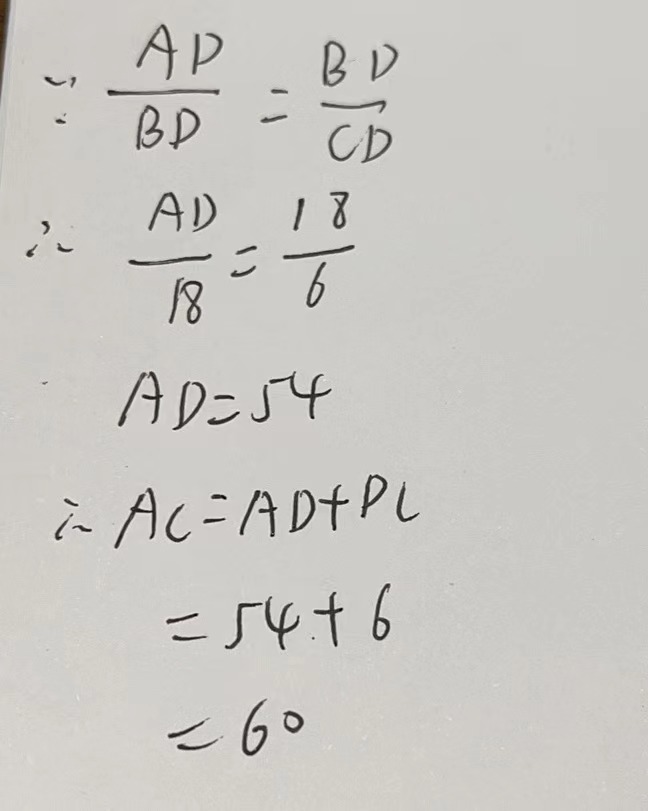 ∵ AD/BD = BD/CD
∴ AD/18 = 18/6
AD=54
∴ AC=AD+DC
=54+6
=60